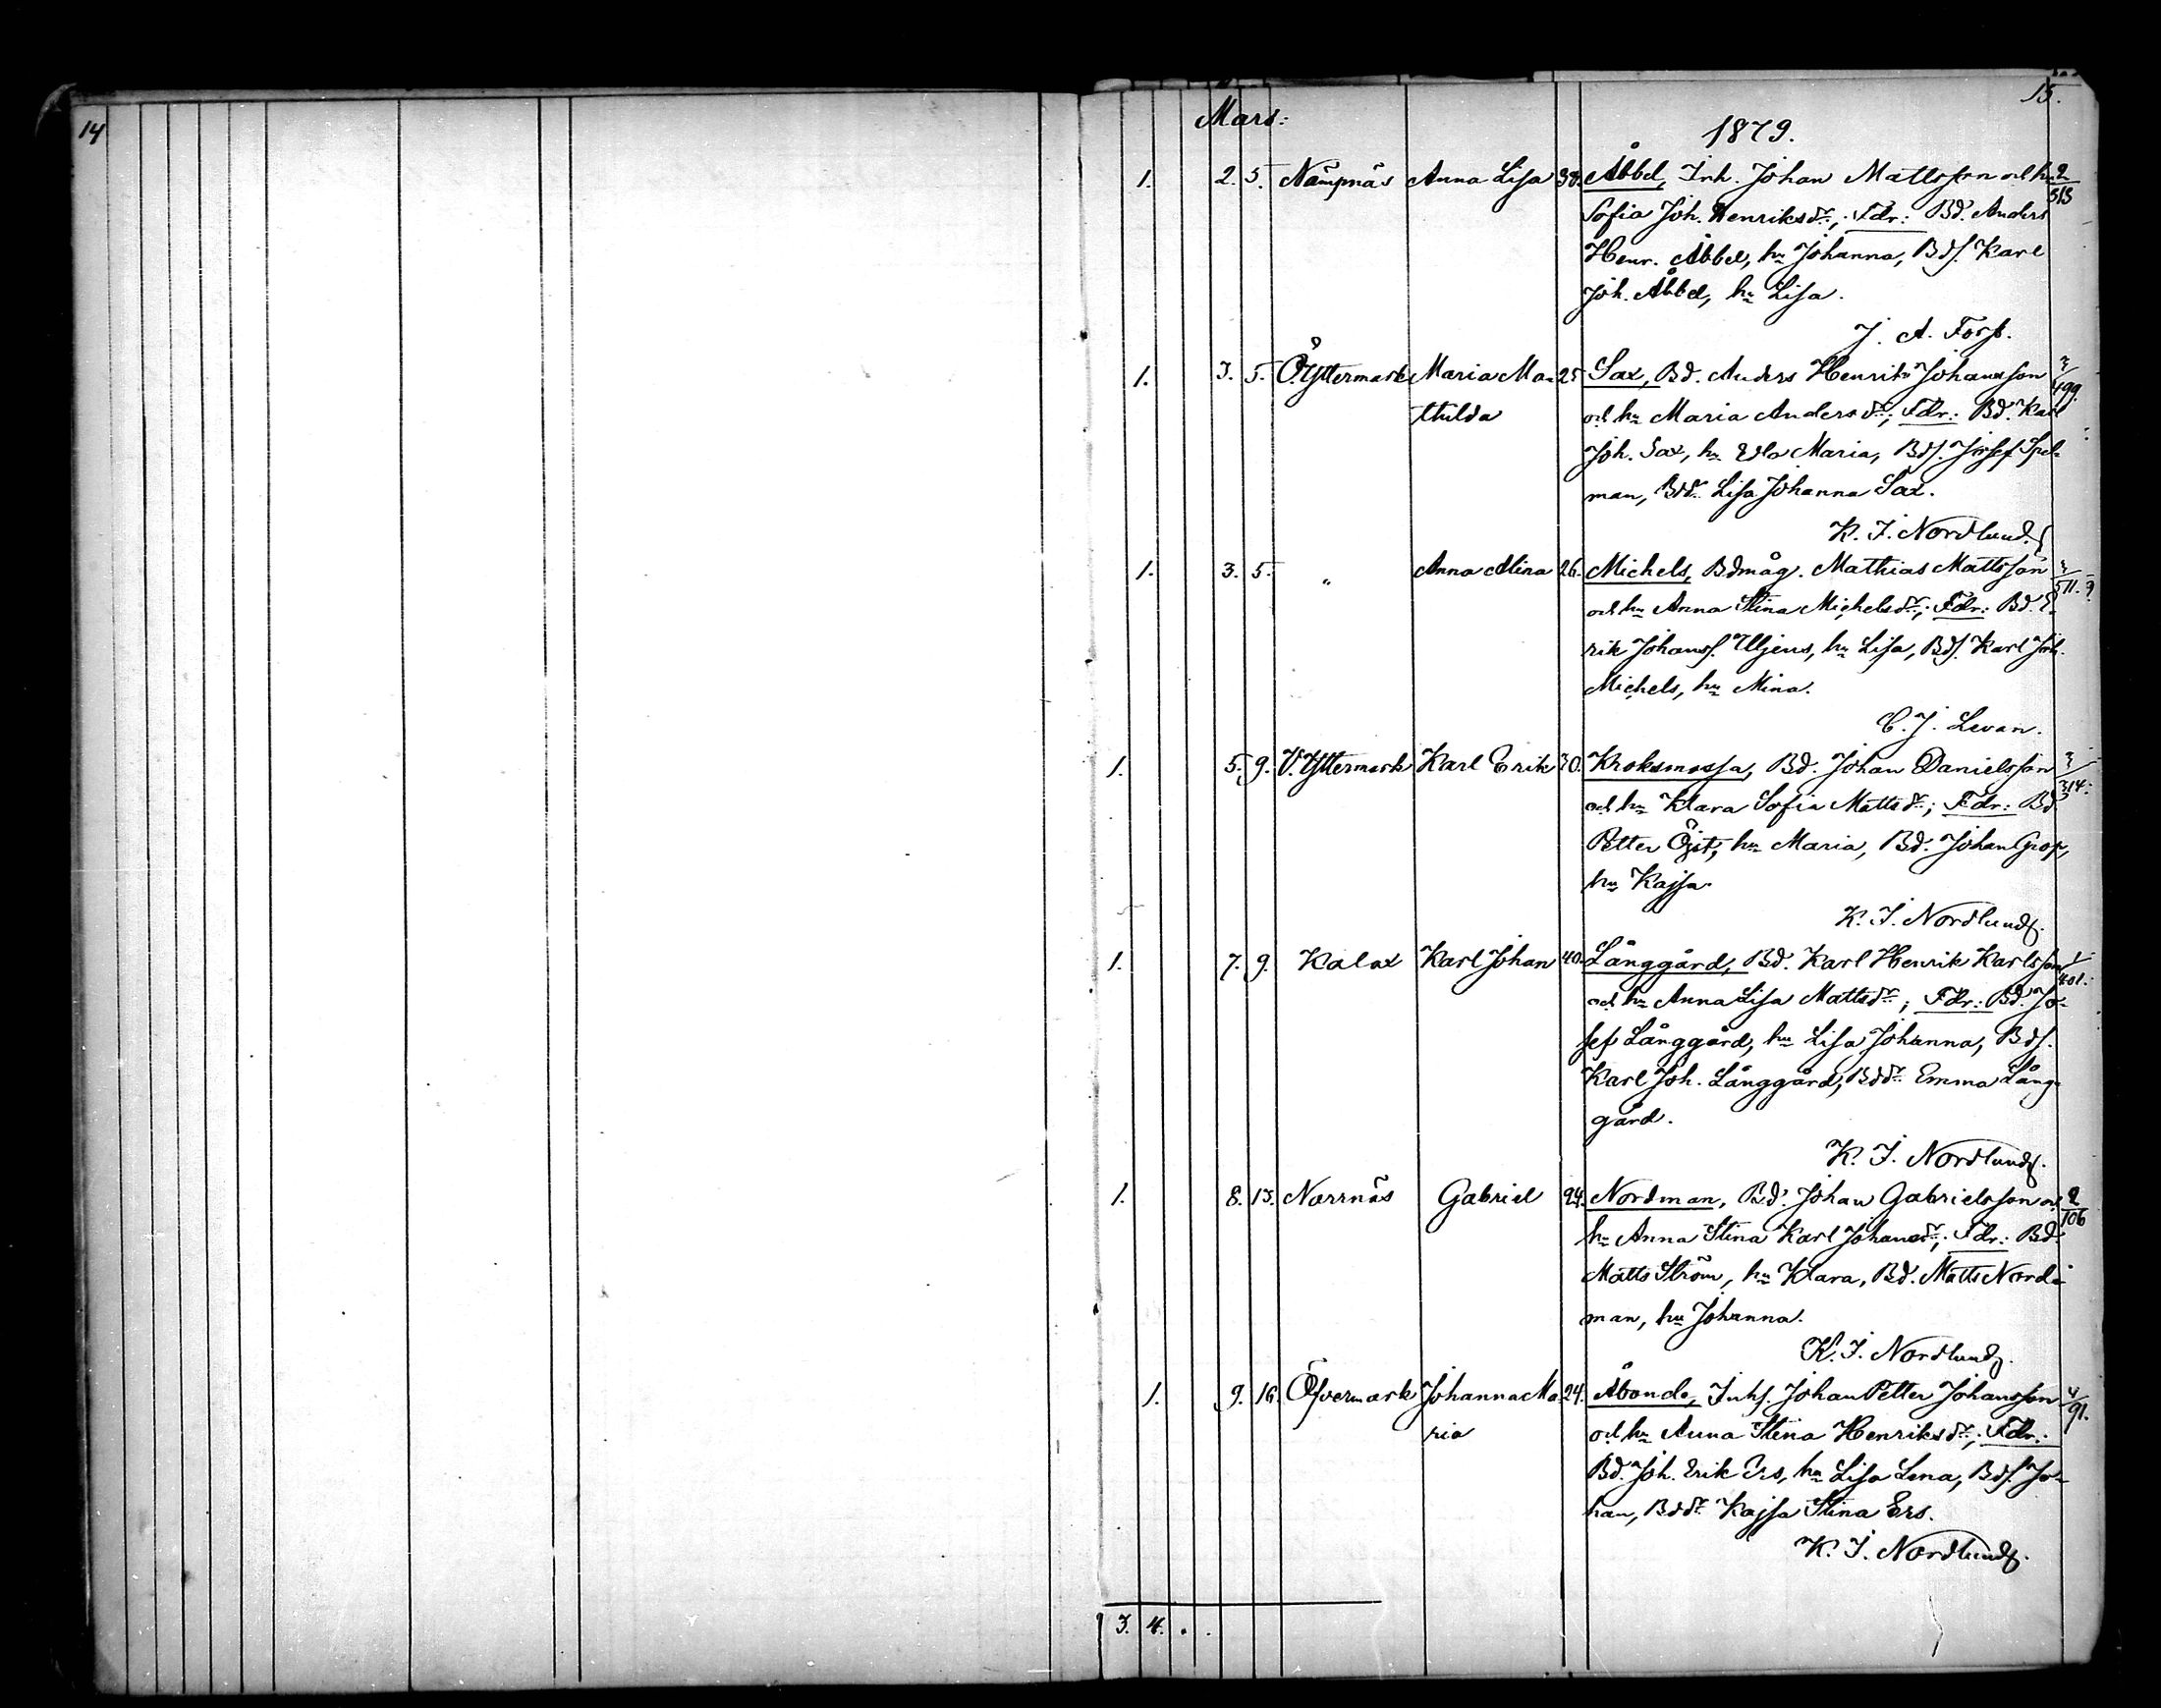 14
15.
Mars:
1879.
1. 2. 5. Nämpnäs Anna Lisa 38. Åbbel, Inh. Johan Mattsson och hu 2/513
Sofia Joh. Henriksdr; Fdr: Bd. Anders
Henr. Åbbel, hu Johanna, Bds. Karl
Joh. Åbbel, hu Lisa.
J. A. Forss.
1. 3. 5. Ö. Yttermark Maria Ma- 25 Sax, Bd. Anders Henrik Johansson 3/499.
thilda och hu Maria Andersdr; Fdr: Bd. Karl
Joh. Sax, hu Eva Maria, Bds. Josef Spel-
man, Bddr Lisa Johanna Sax.
K. I. Nordlund.
1. 3. 5. " Anna Alina 26. Michels, Bdmåg. Mathias Mattsson 3/511.
och hu Anna Stina Michelsdr; Fdr: Bd. E-
rik Johans. Uljens, hu Lisa, Bds. Karl Joh.
Michels, hu Mina.
C. J. Levan.
1. 5. 9. V. Yttermark Karl Erik 30. Kroksmossa, Bd. Johan Danielsson 3/314.
och hu Klara Sofia Mattsdr; Fdr: Bd.
Petter Öjst, hu Maria, Bd. Johan Grop,
hu Kajsa.
K. I. Nordlund.
1. 7. 9. Kalax Karl Johan 40. Långgård, Bd. Karl Henrik Karlsson 1/401.
och hu Anna Lisa Mattsdr; Fdr: Bd. Jo-
sef Långgård, hu Lisa Johanna, Bds.
Karl Joh. Långgård, Bddr Emma Lång-
gård.
K. I. Nordlund.
1. 8. 13. Norrnäs Gabriel 24. Nordman, Bd. Johan Gabrielsson och 2/106
hu Anna Stina Karl Johansdr; Fdr: Bd.
Matts Ström, hu Klara, Bd. Matts Nord-
man, hu Johanna.
K. I. Nordlund.
1. 9. 16. Öfvermark Johanna Ma- 24. Åbonde, Inhs. Johan Petter Johansson 4/91.
ria och hu Anna Stina Henriksdr; Fdr:
Bd. Joh. Erik Ers, hu Lisa Lena, Bds. Jo-
han, Bddr Kajsa Stina Ers.
K. I. Nordlund.
3. 4. . .